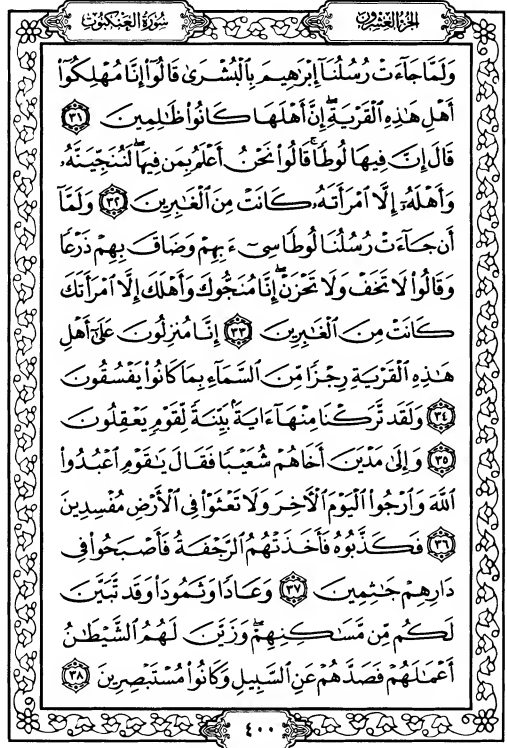 سُورَةُ العَنكبُوت
الجُزءُ العِشرُون
وَلَمَّا جَآءَتْ رُسُلُنَآ إِبْرَٰهِيمَ بِٱلْبُشْرَىٰ قَالُوٓا۟ إِنَّا مُهْلِكُوٓا۟
أَهْلِ هَٰذِهِ ٱلْقَرْيَةِۖ إِنَّ أَهْلَهَا كَانُوا۟ ظَٰلِمِينَ ﴿٣١﴾
قَالَ إِنَّ فِيهَا لُوطًاۚ قَالُوا۟ نَحْنُ أَعْلَمُ بِمَن فِيهَاۖ لَنُنَجِّيَنَّهُۥ
وَأَهْلَهُۥٓ إِلَّا ٱمْرَأَتَهُۥ كَانَتْ مِنَ ٱلْغَٰبِرِينَ ﴿٣٢﴾ وَلَمَّآ
أَن جَآءَتْ رُسُلُنَا لُوطًا سِىٓءَ بِهِمْ وَضَاقَ بِهِمْ ذَرْعًا
وَقَالُوا۟ لَا تَخَفْ وَلَا تَحْزَنْۖ إِنَّا مُنَجُّوكَ وَأَهْلَكَ إِلَّا ٱمْرَأَتَكَ
كَانَتْ مِنَ ٱلْغَٰبِرِينَ ﴿٣٣﴾ إِنَّا مُنزِلُونَ عَلَىٰٓ أَهْلِ
هَٰذِهِ ٱلْقَرْيَةِ رِجْزًا مِّنَ ٱلسَّمَآءِ بِمَا كَانُوا۟ يَفْسُقُونَ
﴿٣٤﴾ وَلَقَد تَّرَكْنَا مِنْهَآ ءَايَةًۢ بَيِّنَةً لِّقَوْمٍ يَعْقِلُونَ
﴿٣٥﴾ وَإِلَىٰ مَدْيَنَ أَخَاهُمْ شُعَيْبًا فَقَالَ يَٰقَوْمِ ٱعْبُدُوا۟
ٱللَّهَ وَٱرْجُوا۟ ٱلْيَوْمَ ٱلْءَاخِرَ وَلَا تَعْثَوْا۟ فِى ٱلْأَرْضِ مُفْسِدِينَ
﴿٣٦﴾ فَكَذَّبُوهُ فَأَخَذَتْهُمُ ٱلرَّجْفَةُ فَأَصْبَحُوا۟ فِى
دَارِهِمْ جَٰثِمِينَ ﴿٣٧﴾ وَعَادًا وَثَمُودَا۟ وَقَد تَّبَيَّنَ
لَكُم مِّن مَّسَٰكِنِهِمْۖ وَزَيَّنَ لَهُمُ ٱلشَّيْطَٰنُ
أَعْمَٰلَهُمْ فَصَدَّهُمْ عَنِ ٱلسَّبِيلِ وَكَانُوا۟ مُسْتَبْصِرِينَ ﴿٣٨﴾
٤٠٠